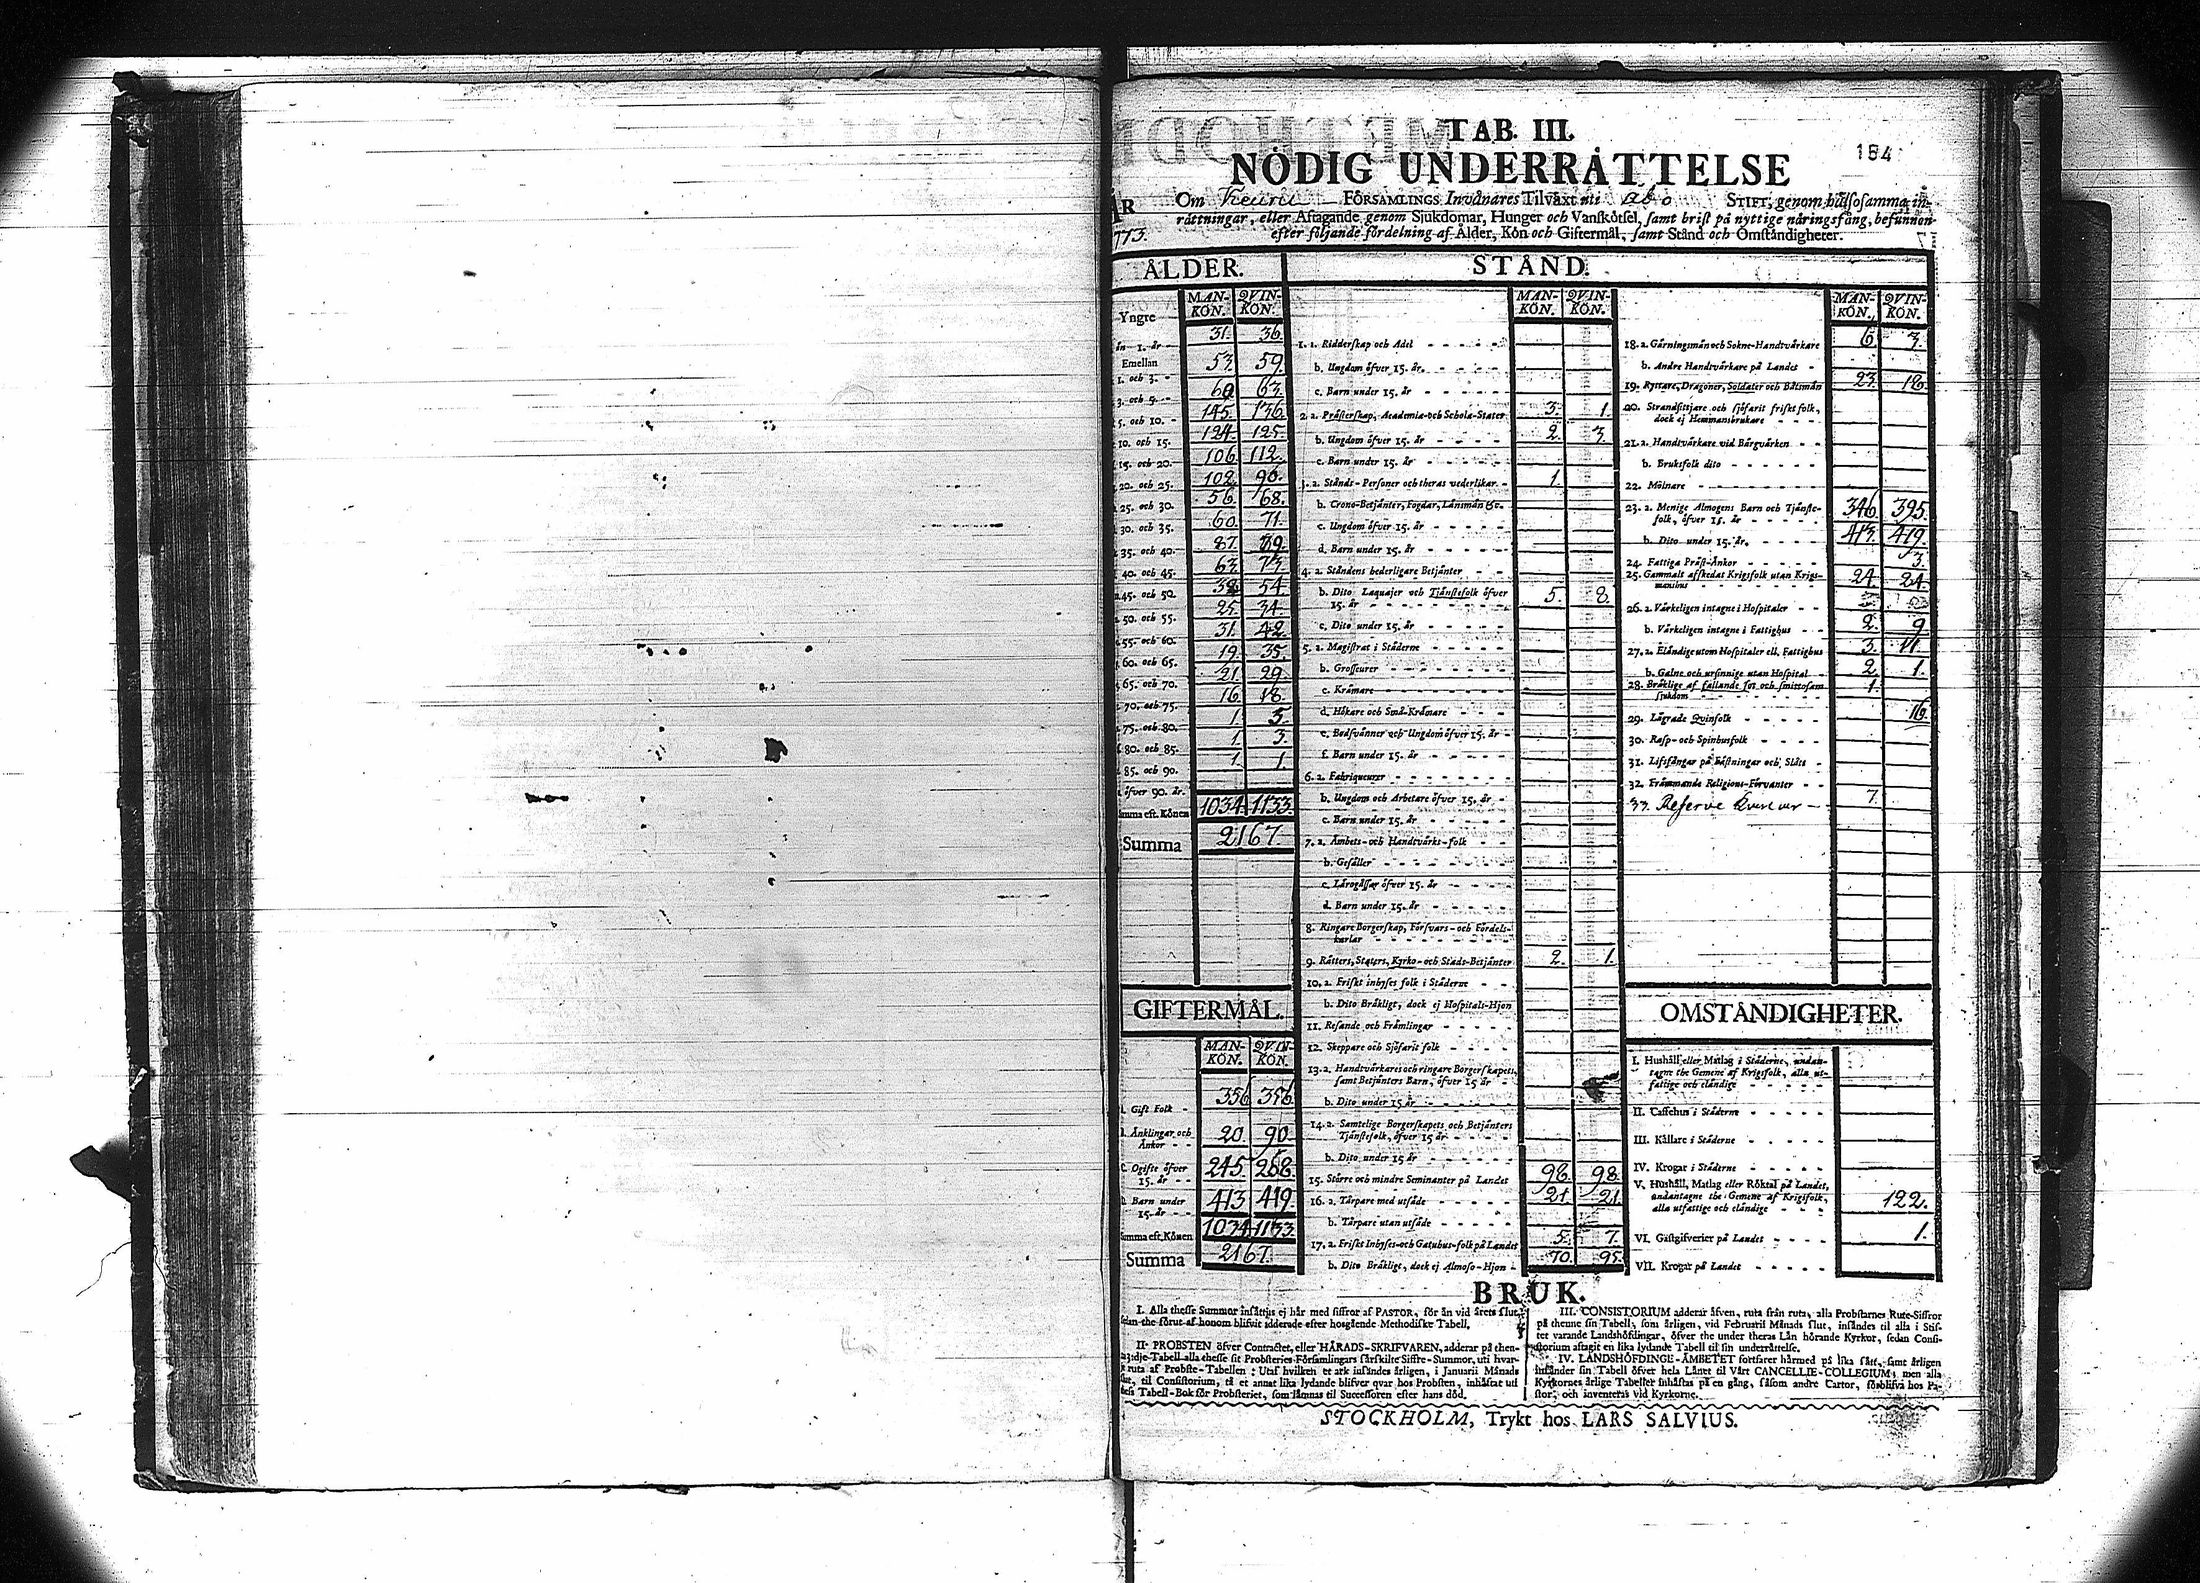 TAB. III.
184
NÖDIG UNDERRÅTTELSE
ÅR Om Keuru FÖRSAMLINGS Invånares Tilväxt uti Åbo STIFT, genom hälsosamma in-
rättningar, eller Aftagande genom Sjukdomar, Hunger och Vanskötsel, samt brist på nyttige näringsfång, befunnen
773. efter följande fördelning af Ålder, Kön och Giftermål, samt Stånd och Omständigheter.
ÅLDER.
MAN-KÖN. QVIN-KÖN.
Yngre än 1. år 31. 36.
Emellan 1. och 3. 53. 59.
3. och 5. 60 63.
5. och 10. 145. 136.
10. och 15. 124. 125.
15. och 20. 106. 112.
20. och 25. 102. 90.
25. och 30. 56. 68.
30. och 35. 60. 71.
35. och 40. 87. 89.
40. och 45. 63. 73.
45. och 50. 38 54.
50. och 55. 25. 34.
55. och 60. 31. 42.
60. och 65. 19. 35.
65. och 70. 21. 29.
70. och 75. 16. 18.
75. och 80. 1. 5.
80. och 85. 1. 3.
85. och 90. 1. 1.
öfver 90. år.
Summa eft. Könen 1034. 1133.
Summa 2167.
GIFTERMÅL.
MAN-KÖN. QVIN-KÖN.
Gift Folk 356 356
Änklingar och Änkor 20. 90.
C. Ogifte öfver 15. år 245 268
Barn under 15. år 413 419.
Summa eft. Könen 1034 1133.
Summa 2167.
STÅND.
MAN-KÖN. QVIN-KÖN.
1. 1. Ridderskap och Adel
b. Ungdom öfver 15. år.
c. Barn under 15. år
2. a. Prästerskap, Academiæ och Scholæ-Stater 3. 1.
b. Ungdom öfver 15. år 2. 3.
c. Barn under 15. år
3. a. Stånds-Personer och theras vederlikar 1.
b. Crono-Betjänter, Fogdar, Länsmän &c.
c. Ungdom öfver 15. år
d. Barn under 15. år
4. a. Ståndens hederligare Betjänter
b. Dito Laquajer och Tjänstefolk öfver
15. år 5. 8.
c. Dito under 15. år
5. a. Magistrat i Städerne
b. Grosseurer
c. Krämare
d. Hökare och Små-Krämare
e. Bodsvänner och Ungdom öfver 15. år
f. Barn under 15. år
6. a. Fabriqueurer
b. Ungdom och Arbetare öfver 15. år
c. Barn under 15. år
7. a. Ämbets- och Handtvärks-folk
b. Gesäller
c. Lärogässar öfver 15. år
d. Barn under 15. år
8. Ringare Borgerskap, Försvars- och Fördels-
karlar
9. Rätters, Staters, Kyrko- och Stads-Betjänter 2. 1.
10. a. Friskt inhyses folk i Städerne
b. Dito Bräkligt, dock ej Hospitals-Hjon
11. Resande och Främlingar
12. Skeppare och Sjöfarit folk
13. a. Handtvärkares och ringare Borgerskapets,
samt Betjänters Barn, öfver 15 år
b. Dito under 15 år
14. a. Samtelige Borgerskapets och Betjänters
Tjänstefolk, öfver 15 år
b. Dito under 15 år
15. Större och mindre Hemmanter på Landet 98. 98.
16. a. Tårpare med utsäde 21 21.
b. Tårpare utan utsäde
17. a. Friskt Inhyses- och Gatuhus-folk på Landet 5. 7.
b. Dito Bräkligt, dock ej Almoso-Hjon 70. 95.
MAN-KÖN. QVIN-KÖN.
18. a. Gärningsmän och Sokne-Handtvärkare 6 3.
b. Andre Handtvärkare på Landet
19. Ryttare, Dragoner, Soldater och Båtsmän 23. 18.
20. Strandsittjare och sjöfarit friskt folk,
dock ej Hemmansbrukare
21. a. Handtvärkare vid Bärgvärken
b. Bruksfolk dito
22. Mölnare
23. a. Menige Almogens Barn och Tjänste-
folk, öfver 15. år 346 395.
b. Dito under 15. år. 413. 419.
24. Fattiga Präst-Änkor 3.
25. Gammalt afskedat Krigsfolk utan Krigs-
manshus 24. 24.
26. a. Värkeligen intagne i Hospitaler
b. Värkeligen intagne i Fattighus 2. 9
27. a. Eländige utom Hospitaler ell. Fattighus 3. 11.
b. Galne och ursinnige utan Hospital 2 1.
28. Bräklige af fallande sot och smittosam
sjukdom 1.
29. Lägrade Qvinfolk 16.
30. Rasp- och Spinhusfolk
31. Lifsfångar på Fästningar och Slätt
32. Främmande Religions-Förvanter
33. Reserve 7.
OMSTÄNDIGHETER.
I. Hushåll eller Matlag i Städerne, undan-
tagne the Gemene af Krigsfolk, alla ut-
fattige och eländige
II. Caffehus i Städerne
III. Källare i Städerne
IV. Krogar i Städerne
V. Hushåll, Matlag eller Röktal på Landet,
undantagne the Gemene af Krigsfolk,
alla utfattige och eländige 122.
VI. Gästgifverier på Landet 1.
VII. Krogar på Landet
BRUK.
I. Alla thesse Summor insättjas ej här med siffror af PASTOR, för än vid årets slut,
sedan the förut af honom blifvit idderade efter hosgående Methodiske Tabell.
II. PROBSTEN öfver Contractet, eller HÄRADS-SKRIFVAREN, adderar på then-
na 3:dje Tabell alla thesse sit Probsteries Församlingars särskilte Siffre-Summor, uti hvar-
je ruta af Probste-Tabellen: Utaf hvilken et ark insändes årligen, i Januarii Månads
slut, til Consistorium, tå et annat lika lydande blifver qvar hos Probsten, inhäftat uti
thess Tabell-Bok för Probsteriet, som lämnas til Successoren efter hans död.
III. CONSISTORIUM adderar äfven, ruta från ruta, alla Probstarnes Rute-Siffror
på thenne sin Tabell, som årligen, vid Februarii Månads slut, insändes til alla i Stif-
tet varande Landshöfdingar, öfver the under theras Län hörande Kyrkor, sedan Consi-
storium aftagit en lika lydande Tabell til sin underrättelse.
IV. LANDSHÖFDINGE-ÄMBETET fortfarer härmed på lika sätt, samt årligen
insänder sin Tabell öfver hela Länet til Vårt CANCELLIE-COLLEGIUM; men alla
Kyrkornes årlige Tabeller inhäftas på en gång, såsom andre Cartor, förblifva hos Pa-
stor, och inventeras vid Kyrkorne.
STOCKHOLM, Trykt hos LARS SALVIUS.